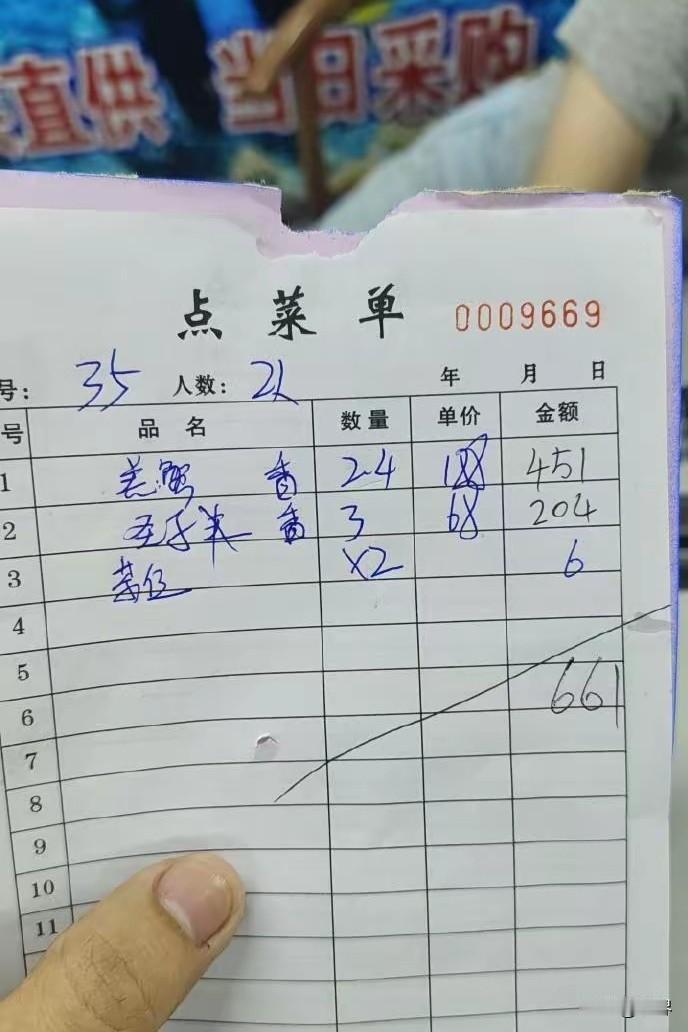 直供 当日采购
点菜单 0009669
号: 35 人数: 2人 年 月 日
号 品名 数量 单价 金额
1 羔蟹 香 2.4 188 451
2 圣子 香 3 68 204
3 茶位 x2 6
4
5
6 661
7
8
9
10
11